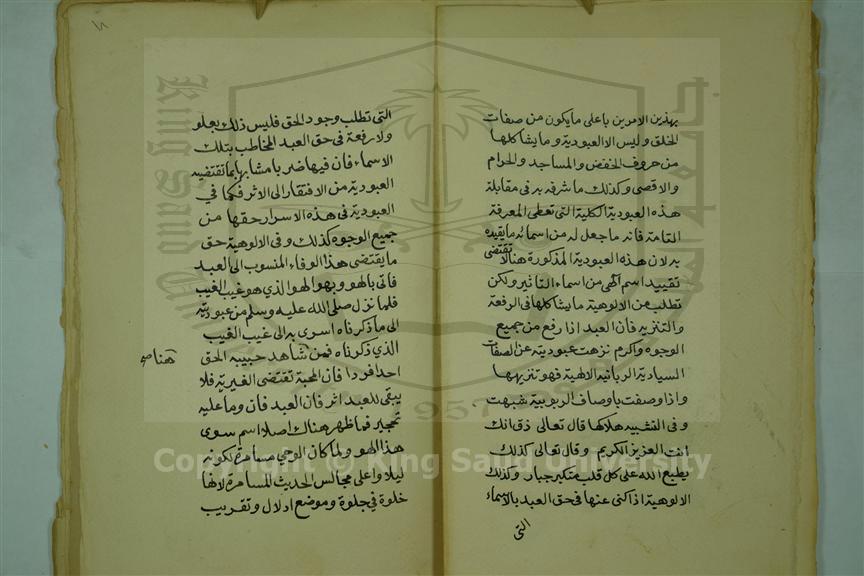 بهذين الامرين باعلى ما يكون من صفات
الخلق وليس الا العبودية وما يشاكلها
من حروف الخفض والمساجد والحرام
والاقصى وكذلك ما شرفه به فى مقابلة
هذه العبودية الكلية التى تعطى المعرفة
التامة فانه ما جعل له من اسمائه ما يقيده
به لان هذه العبودية المذكورة هنا لا تقتضى
تقييد اسم الهى من اسماء التاثير ولكن
تطلب من الالوهية ما يشاكلها فى الرفعة
والتنزيه فان العبد اذا رفع من جميع
الوجوه واكرم نزهت عبوديته عن الصفات
السيادية الربانية الالهية فهو تنزيهها
واذا وصفت باوصاف الربوبية شبهت
وفى التشبيه هلاكها قال تعالى ذق انك
انت العزيز الكريم وقال تعالى كذلك
يطبع الله على كل قلب متكبر جبار وكذلك
الالوهية اذا كنى عنها فى حق العبد بالاسماء
التى
١٨
التى تطلب وجود الحق فليس ذلك بعلو
ولا رفعة فى حق العبد المخاطب بتلك
الاسماء فان فيها ضربا مشابها بما تقتضيه
العبودية من الافتقار الى الاثر فكما فى
العبودية فى هذه الاسرار حقها من
جميع الوجوه كذلك وفى الالوهية حق
ما يقتضى هذا الوفاء المنسوب الى العبد
فاتى بالهو وبهو الهو الذى هو غيب الغيب
فلما نزل صلى الله عليه وسلم من عبوديته
الى ما ذكرناه اسرى به الى غيب الغيب
الذى ذكرناه فمن شاهد حبيبه الحق
هنا صح
احدا فردا فان المحبة تقتضى الغيرية فلا
يبقى للعبد اثر فان العبد فان وما عليه
تحجير فما ظهر هناك اصلا اسم سوى
هذا الهو ولما كان الوحى مسامرة لكونه
ليلا واعلى مجالس الحديث المسامرة لانها
خلوة فى جلوة وموضع ادلال وتقريب
King Saud University
1957
Copyright © King Saud University